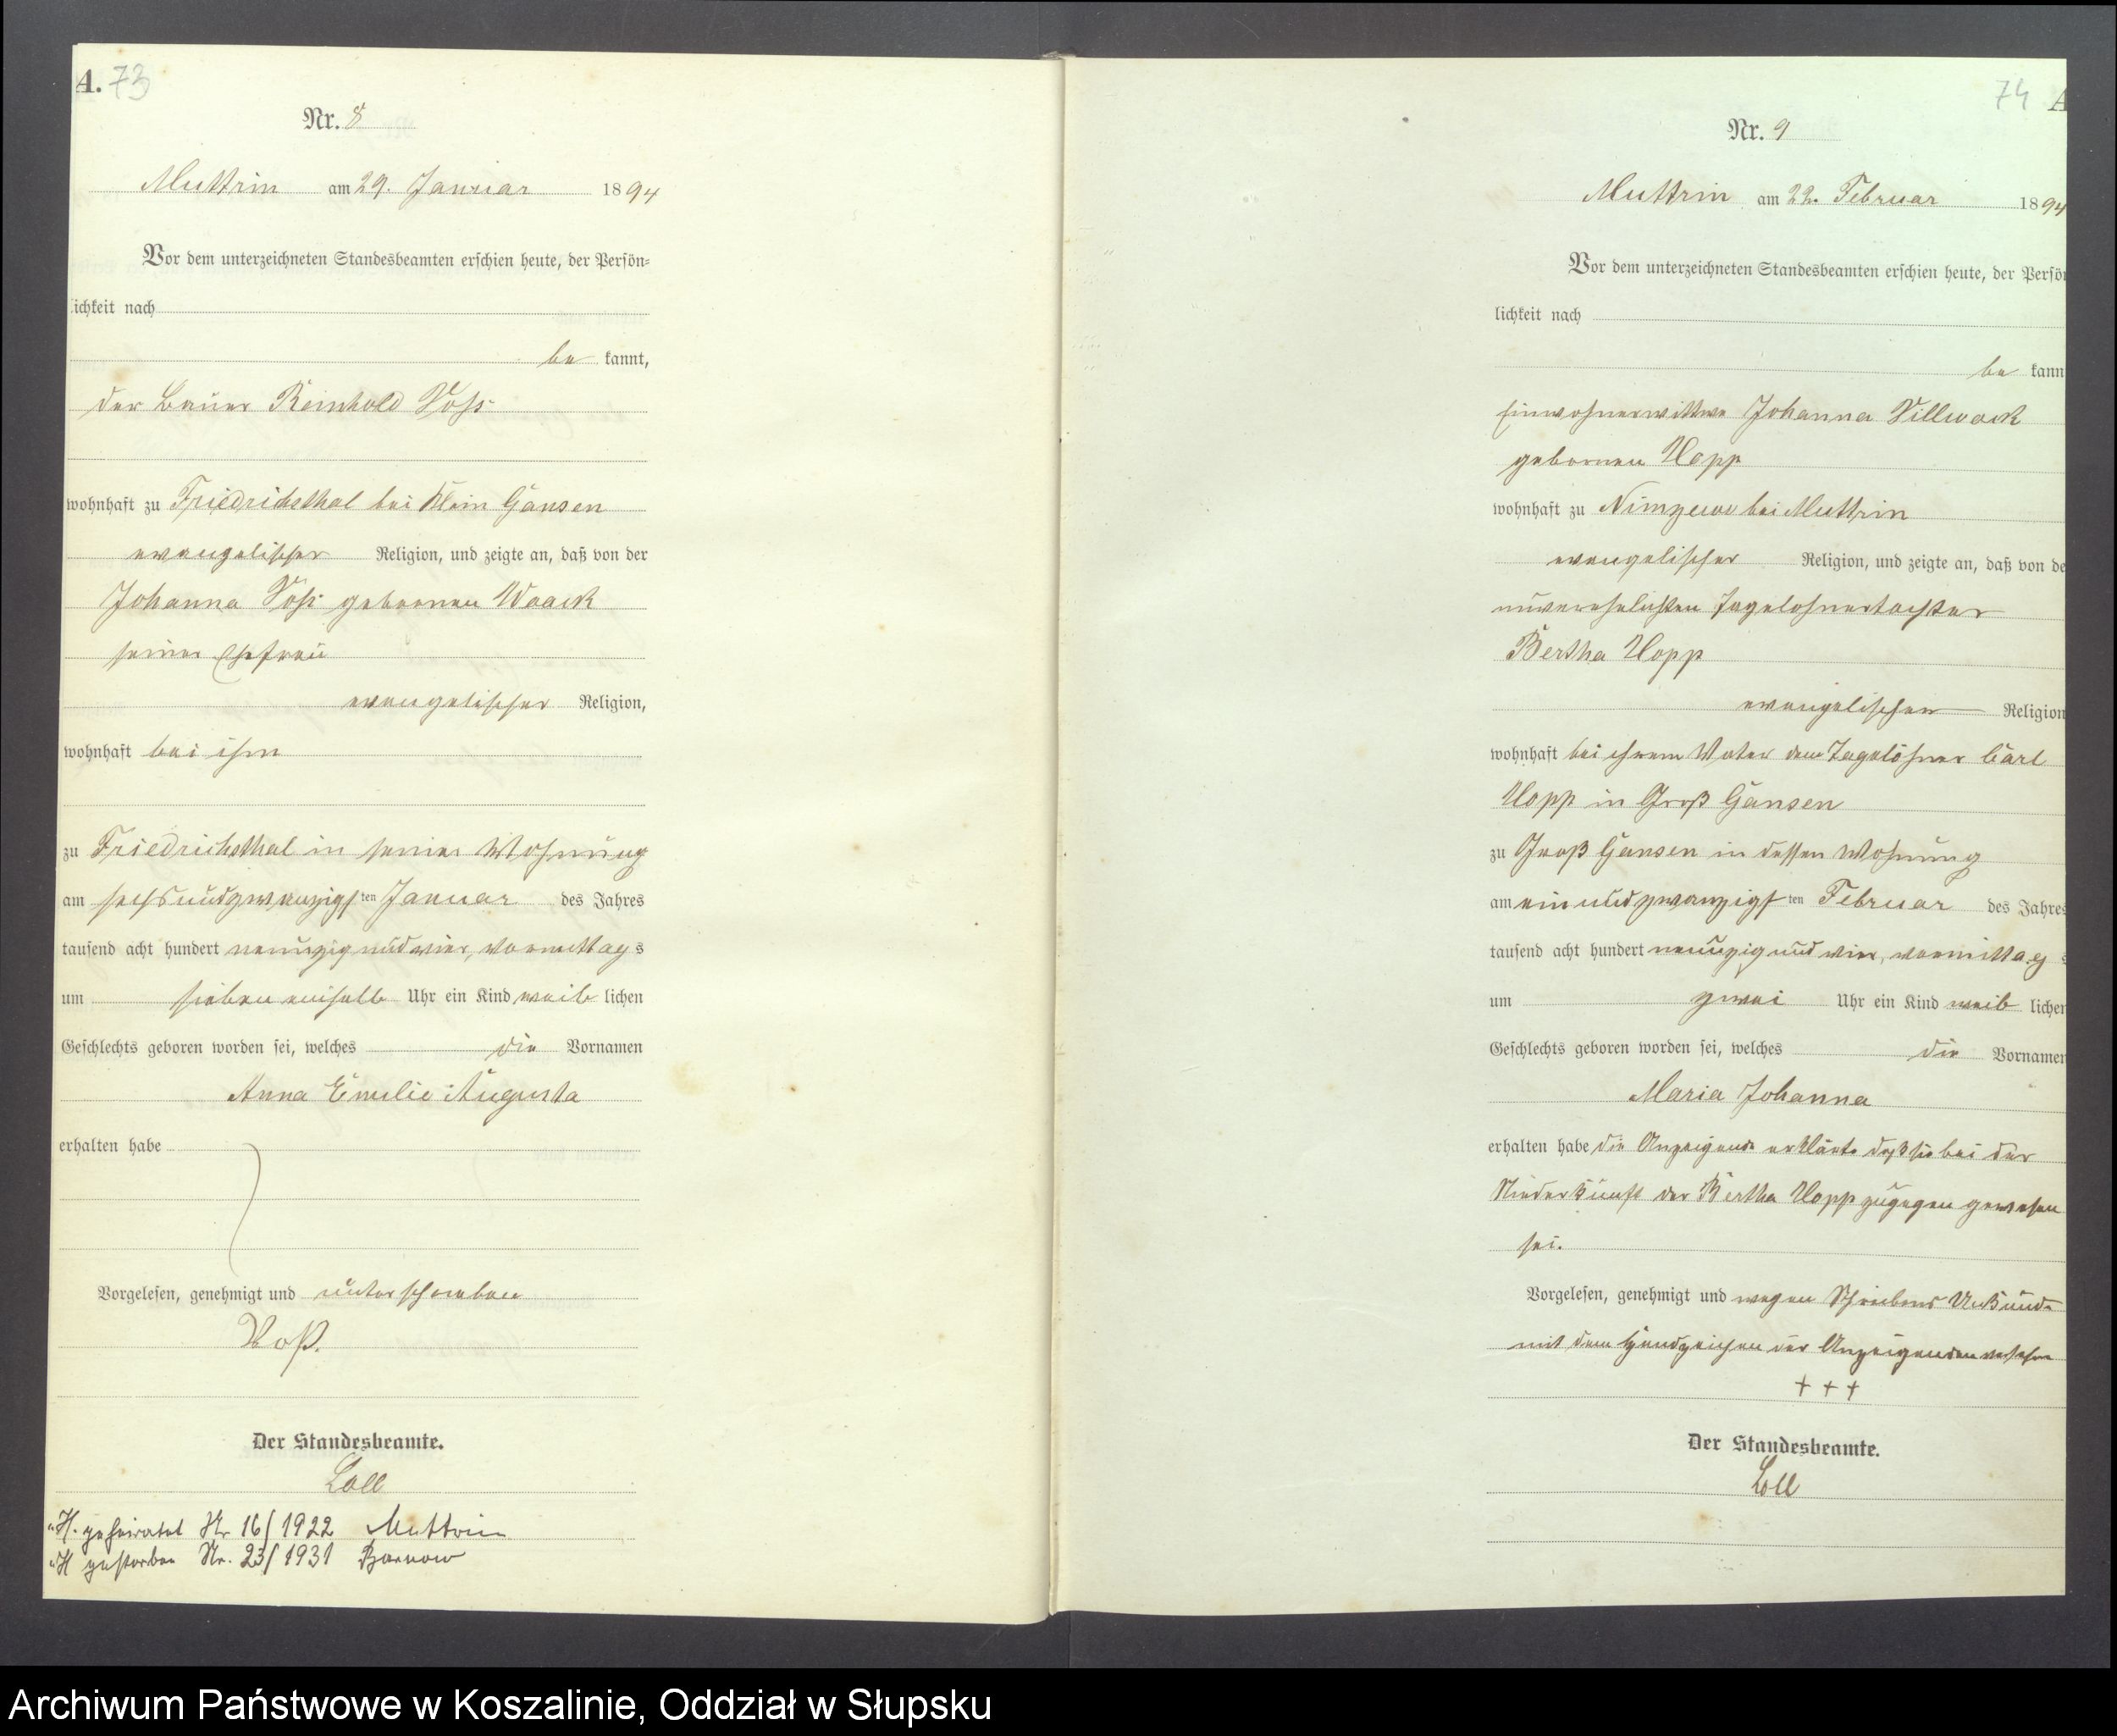 A. 73
Nr. 8
Muttrin am 29. Januar 1894
Vor dem unterzeichneten Standesbeamten erschien heute, der Persön=
lichkeit nach
be kannt,
der Bauer Reinhold Voß
wohnhaft zu Friedrichsthal bei Klein Gansen
evangelischer Religion, und zeigte an, daß von der
Johanna Voß gebornen Waack
seiner Ehefrau
evangelischer Religion,
wohnhaft bei ihm
zu Friedrichsthal in seiner Wohnung
am sechsundzwanzigsten Januar des Jahres
tausend acht hundert neunzig und vier, Vormittags
um sieben einhalb Uhr ein Kind weib lichen
Geschlechts geboren worden sei, welches die Vornamen
Anna Emilie Augusta
erhalten habe
Vorgelesen, genehmigt und unterschrieben
Voß.
Der Standesbeamte.
Loll
H. geheiratet Nr 16/1922 Muttrin
H gestorben Nr. 23/1931 Bornow
74 A
Nr. 9
Muttrin am 22. Februar 1894
Vor dem unterzeichneten Standesbeamten erschien heute, der Persön
lichkeit nach
be kann
Einwohnerwittwe Johanna Villwock
gebornen Kopp
wohnhaft zu Nimzewe bei Muttrin
evangelischer Religion, und zeigte an, daß von de
unverehelichten Tagelohnertochter
Bertha Kopp
evangelischen Religion
wohnhaft bei ihrem Vater dem Tagelöhner Carl
Kopp in Groß Gansen
zu Groß Gansen in dessen Wohnung
am ein und zwanzigsten Februar des Jahres
tausend acht hundert neunzig und vier, vormittag s
um zwei Uhr ein Kind weib lichen
Geschlechts geboren worden sei, welches die Vornamen
Maria Johanna
erhalten habe die Anzeigende erklärte daß sie bei der
Niederkunft der Bertha Kopp zugegen gewesen
sei.
Vorgelesen, genehmigt und wegen Schreibens Unkunde
mit dem Handzeichen der Anzeigenden versehen
+ + +
Der Standesbeamte.
Loll
Archiwum Państwowe w Koszalinie, Oddział w Słupsku